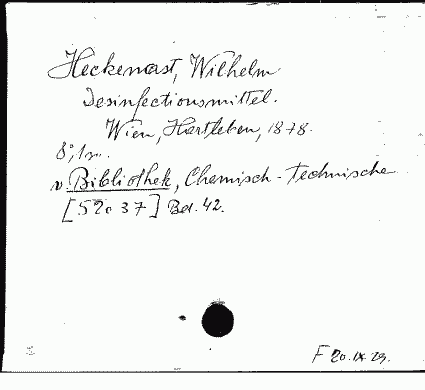 Heckenast, Wilhelm
Desinfectionsmittel.
Wien, Hartleben, 1878.
8°, 1 
v. Bibliothek, Chemisch-technische
[52c37] Bd. 42.
F 20.IX.29.